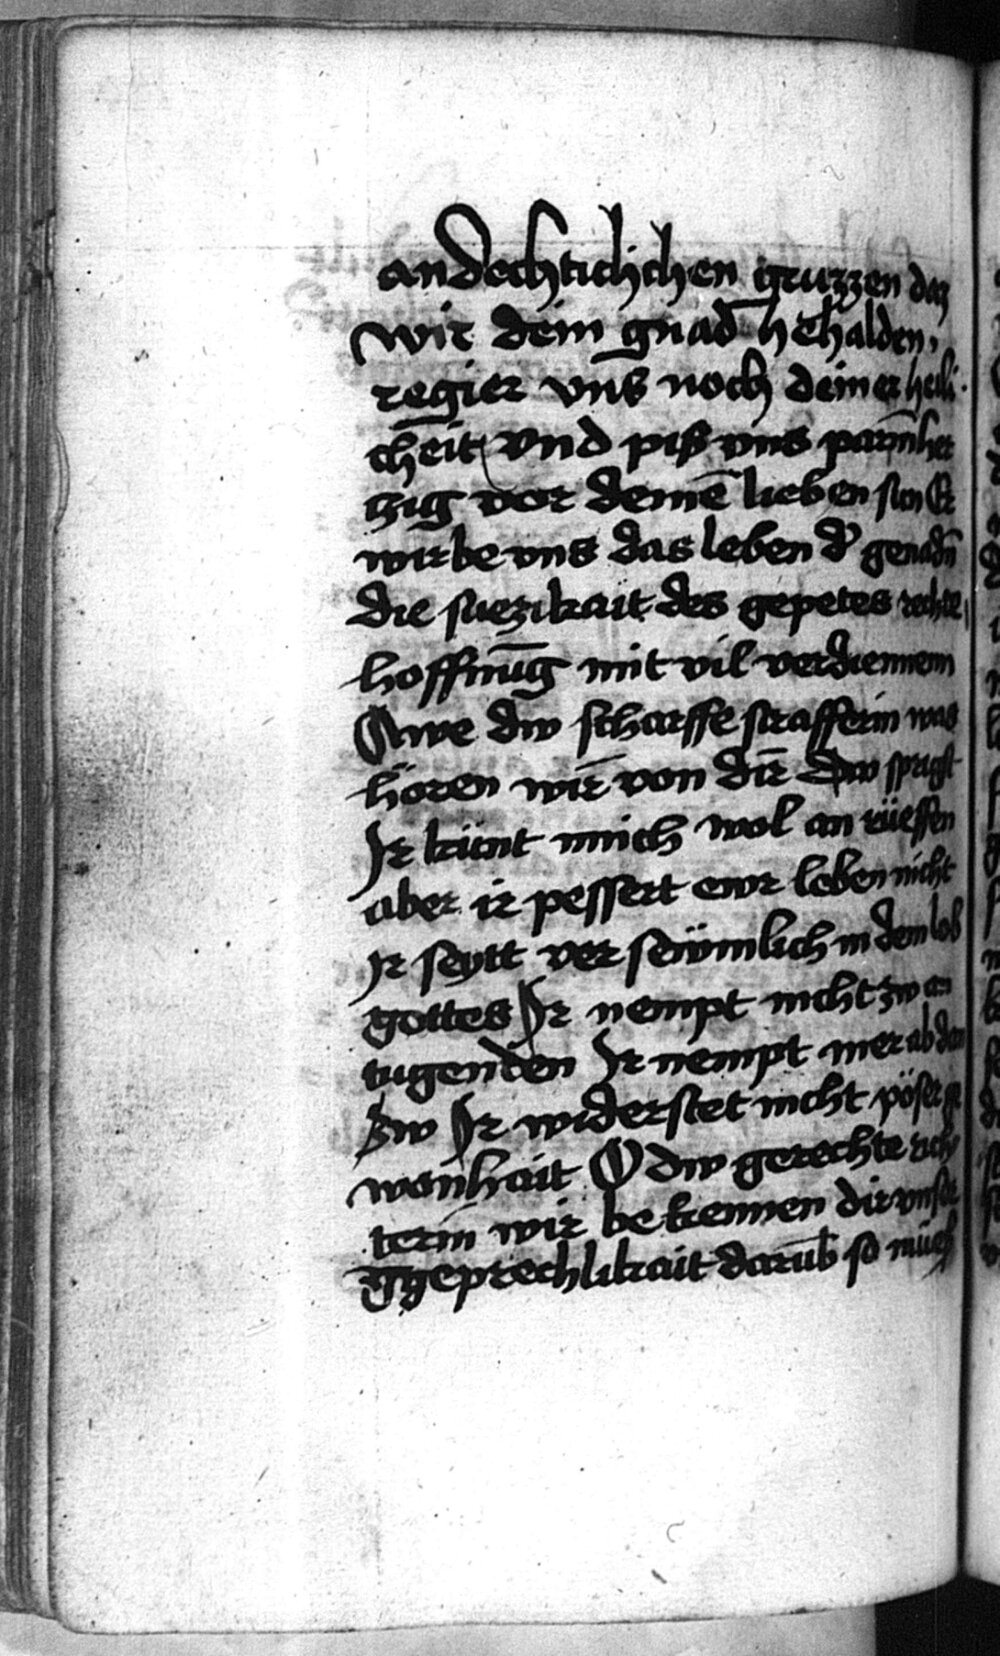 andechticlichen gruzzen daz
wir dein gnad behalden,
regier vns noch deiner heili
cheit vnd piß vns parmher
zig vor deinē lieben sun Er
wirbe vns das leben dˀ genadn̄
die suezikait des gepetes rechte
hoffnūg mit vil verdiennenn
Awe dw scharffe strafferin was
hören wir von dir Dw sprigst
Ir künt mich wol an rüeffen
aber ir pessert ewr leben nicht
Ir seytt ver seẅmlich in dem lob
gottes Ir nempt nicht zw an
tugenden Ir nempt mer ab dan
zw Ir widerstet nicht pöser ge
wonhait O dw gerechte rich
terin wir be kennen dir vnser
geprechlikait darūb so müeß